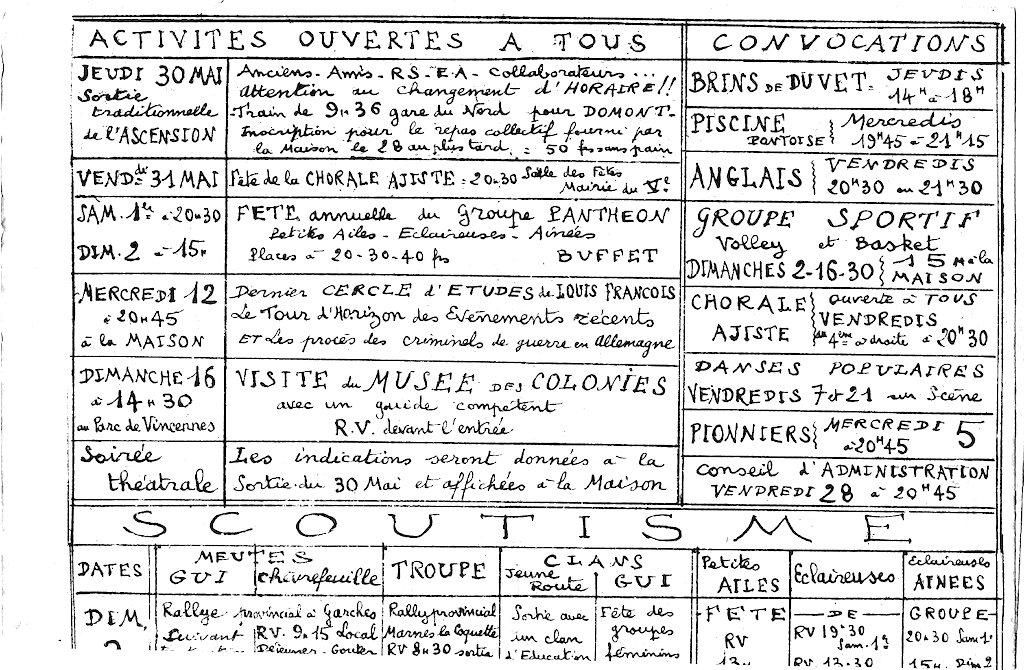 ACTIVITES OUVERTES A TOUS
JEUDI 30 MAI
Sortie
traditionnelle
de l'ASCENSION
Anciens - Amis - RS - EA - Collaborateurs...
Attention au changement d'HORAIRE!!
Train de 9H36 gare du Nord pour DOMONT -
Inscription pour le repas collectif fourni par
la Maison le 28 au plus tard. = 50 frs sans pain
VENDdi 31 MAI
Fête de la CHORALE AJISTE = 20H30 Salle des Fêtes
Mairie du Ve
SAM. 1er à 20H30
DIM. 2 - 15H
FETE annuelle du Groupe PANTHEON
Petites Ailes - Eclaireuses - Ainées
Places à 20-30-40 frs BUFFET
MERCREDI 12
à 20H45
à la MAISON
Dernier CERCLE d'ETUDES de LOUIS FRANCOIS
Le Tour d'Horizon des Evénements récents
ET Les procès des criminels de guerre en Allemagne
DIMANCHE 16
à 14H30
au Parc de Vincennes
VISITE du MUSEE DES COLONIES
avec un guide compétent
R.V. devant l'entrée
Soirée
théatrale
Les indications seront données à la
Sortie du 30 Mai et affichées à la Maison
CONVOCATIONS
BRINS DE DUVET = JEUDIS
14H à 18H
PISCINE
PONTOISE
Mercredis
19H45 à 21H15
ANGLAIS
VENDREDIS
20H30 au 21H30
GROUPE SPORTIF
Volley et Basket
DIMANCHES 2-16-30
15H à la
MAISON
CHORALE
AJISTE
ouverte à TOUS
VENDREDIS
au 4ème à droite à 20H30
DANSES POPULAIRES
VENDREDIS 7 et 21 sur Scène
PIONNIERS
MERCREDI 5
à 20H45
Conseil d'ADMINISTRATION
VENDREDI 28 à 20H45
SCOUTISME
DATES
MEUTES
GUI
Chèvrefeuille
TROUPE
CLANS
Jeune
Route
GUI
Petites
AILES
Eclaireuses
Eclaireuses
AINEES
DIM.
Rallye provincial à Garches
Suivant
RV. 9H15 Local
Déjeuner - Gouter
Rally provincial
Marnes la Coquette
RV 8H30 sortie
Sortie avec
un clan
d'Education
Fête des
groupes
féminins
FETE
RV
DE
RV 19H30
Sam. 1er
RV. 13H30
GROUPE
20H30 Sam 1er
15H. Dim 2